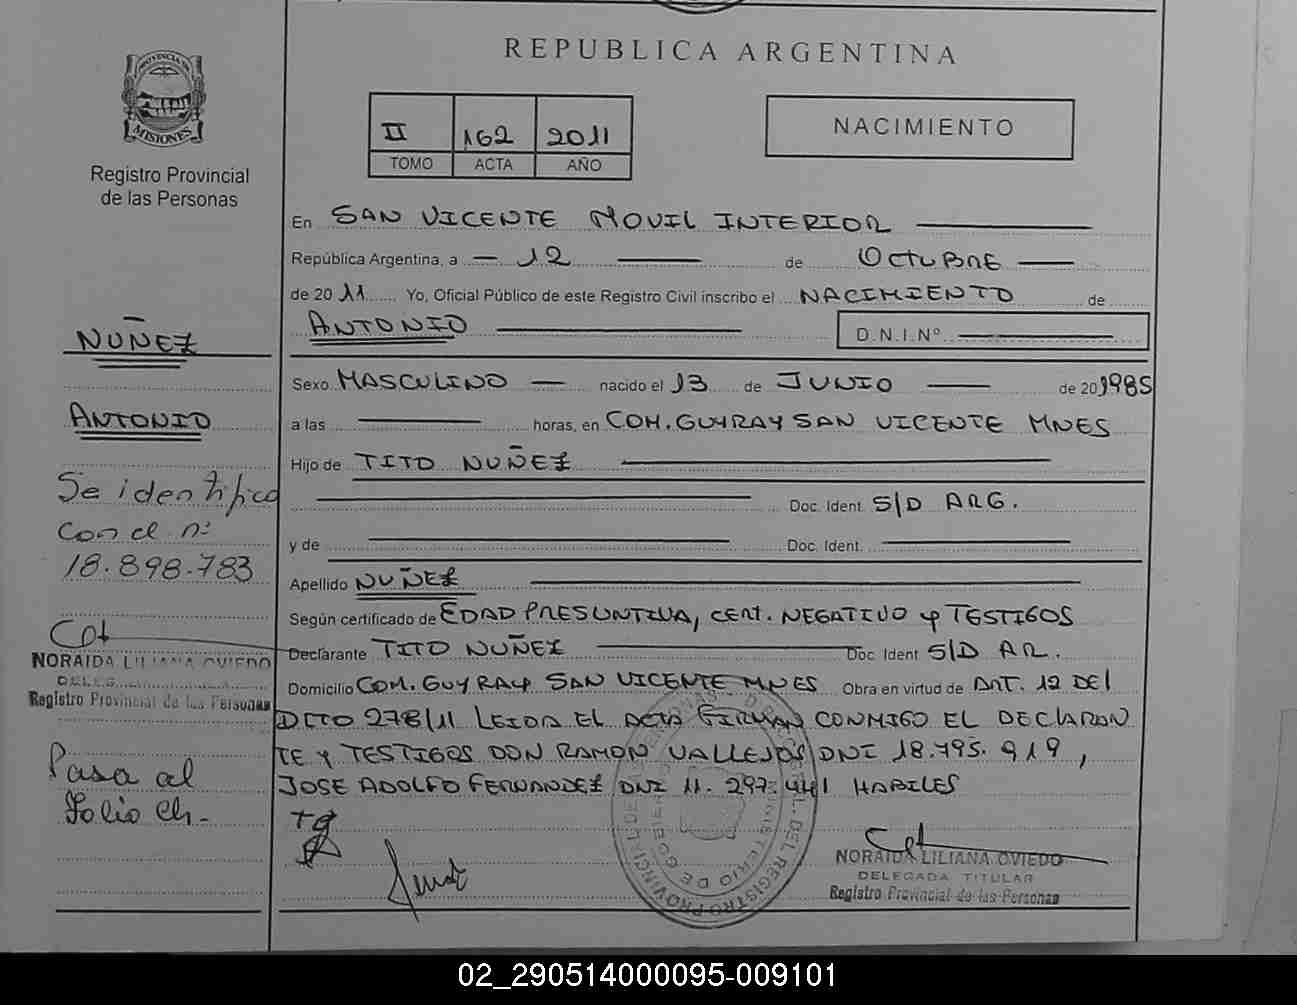 REPUBLICA ARGENTINA
PROVINCIA DE
MISIONES
Registro Provincial
de las Personas
II 162 2011
TOMO ACTA AÑO
NACIMIENTO
En SAN VICENTE MOVIL INTERIOR
República Argentina, a 12 de OCTUBRE
de 2011 Yo, Oficial Público de este Registro Civil inscribo el NACIMIENTO de
ANTONIO D.N.I.Nº
Sexo MASCULINO nacido el 13 de JUNIO de 20 1985
a las horas, en COM. GUYRAY SAN VICENTE MNES
Hijo de TITO NUÑEZ
Doc. Ident. S/D ARG.
y de Doc. Ident.
Apellido NUÑEZ
Según certificado de EDAD PRESUNTIVA, CERT. NEGATIVO y TESTIGOS
Declarante TITO NUÑEZ Doc. Ident S/D AR.
Domicilio COM. GUYRAY SAN VICENTE MNES Obra en virtud de ART. 12 DEL
DCTO 278/11 LEIDA EL ACTA FIRMAN CONMIGO EL DECLARAN
TE Y TESTIGOS DON RAMON VALLEJOS DNI 18.795.919,
JOSE ADOLFO FERNANDEZ DNI 11.297.441 HABILES
NORAIDA LILIANA OVIEDO
DELEGADA TITULAR
Registro Provincial de las Personas
NUÑEZ
ANTONIO
Se identifico
con d. nº
18.898.783
NORAIDA LILIANA OVIEDO
Registro Provincial de las Personas
Pasa al
Folio
02_290514000095-009101